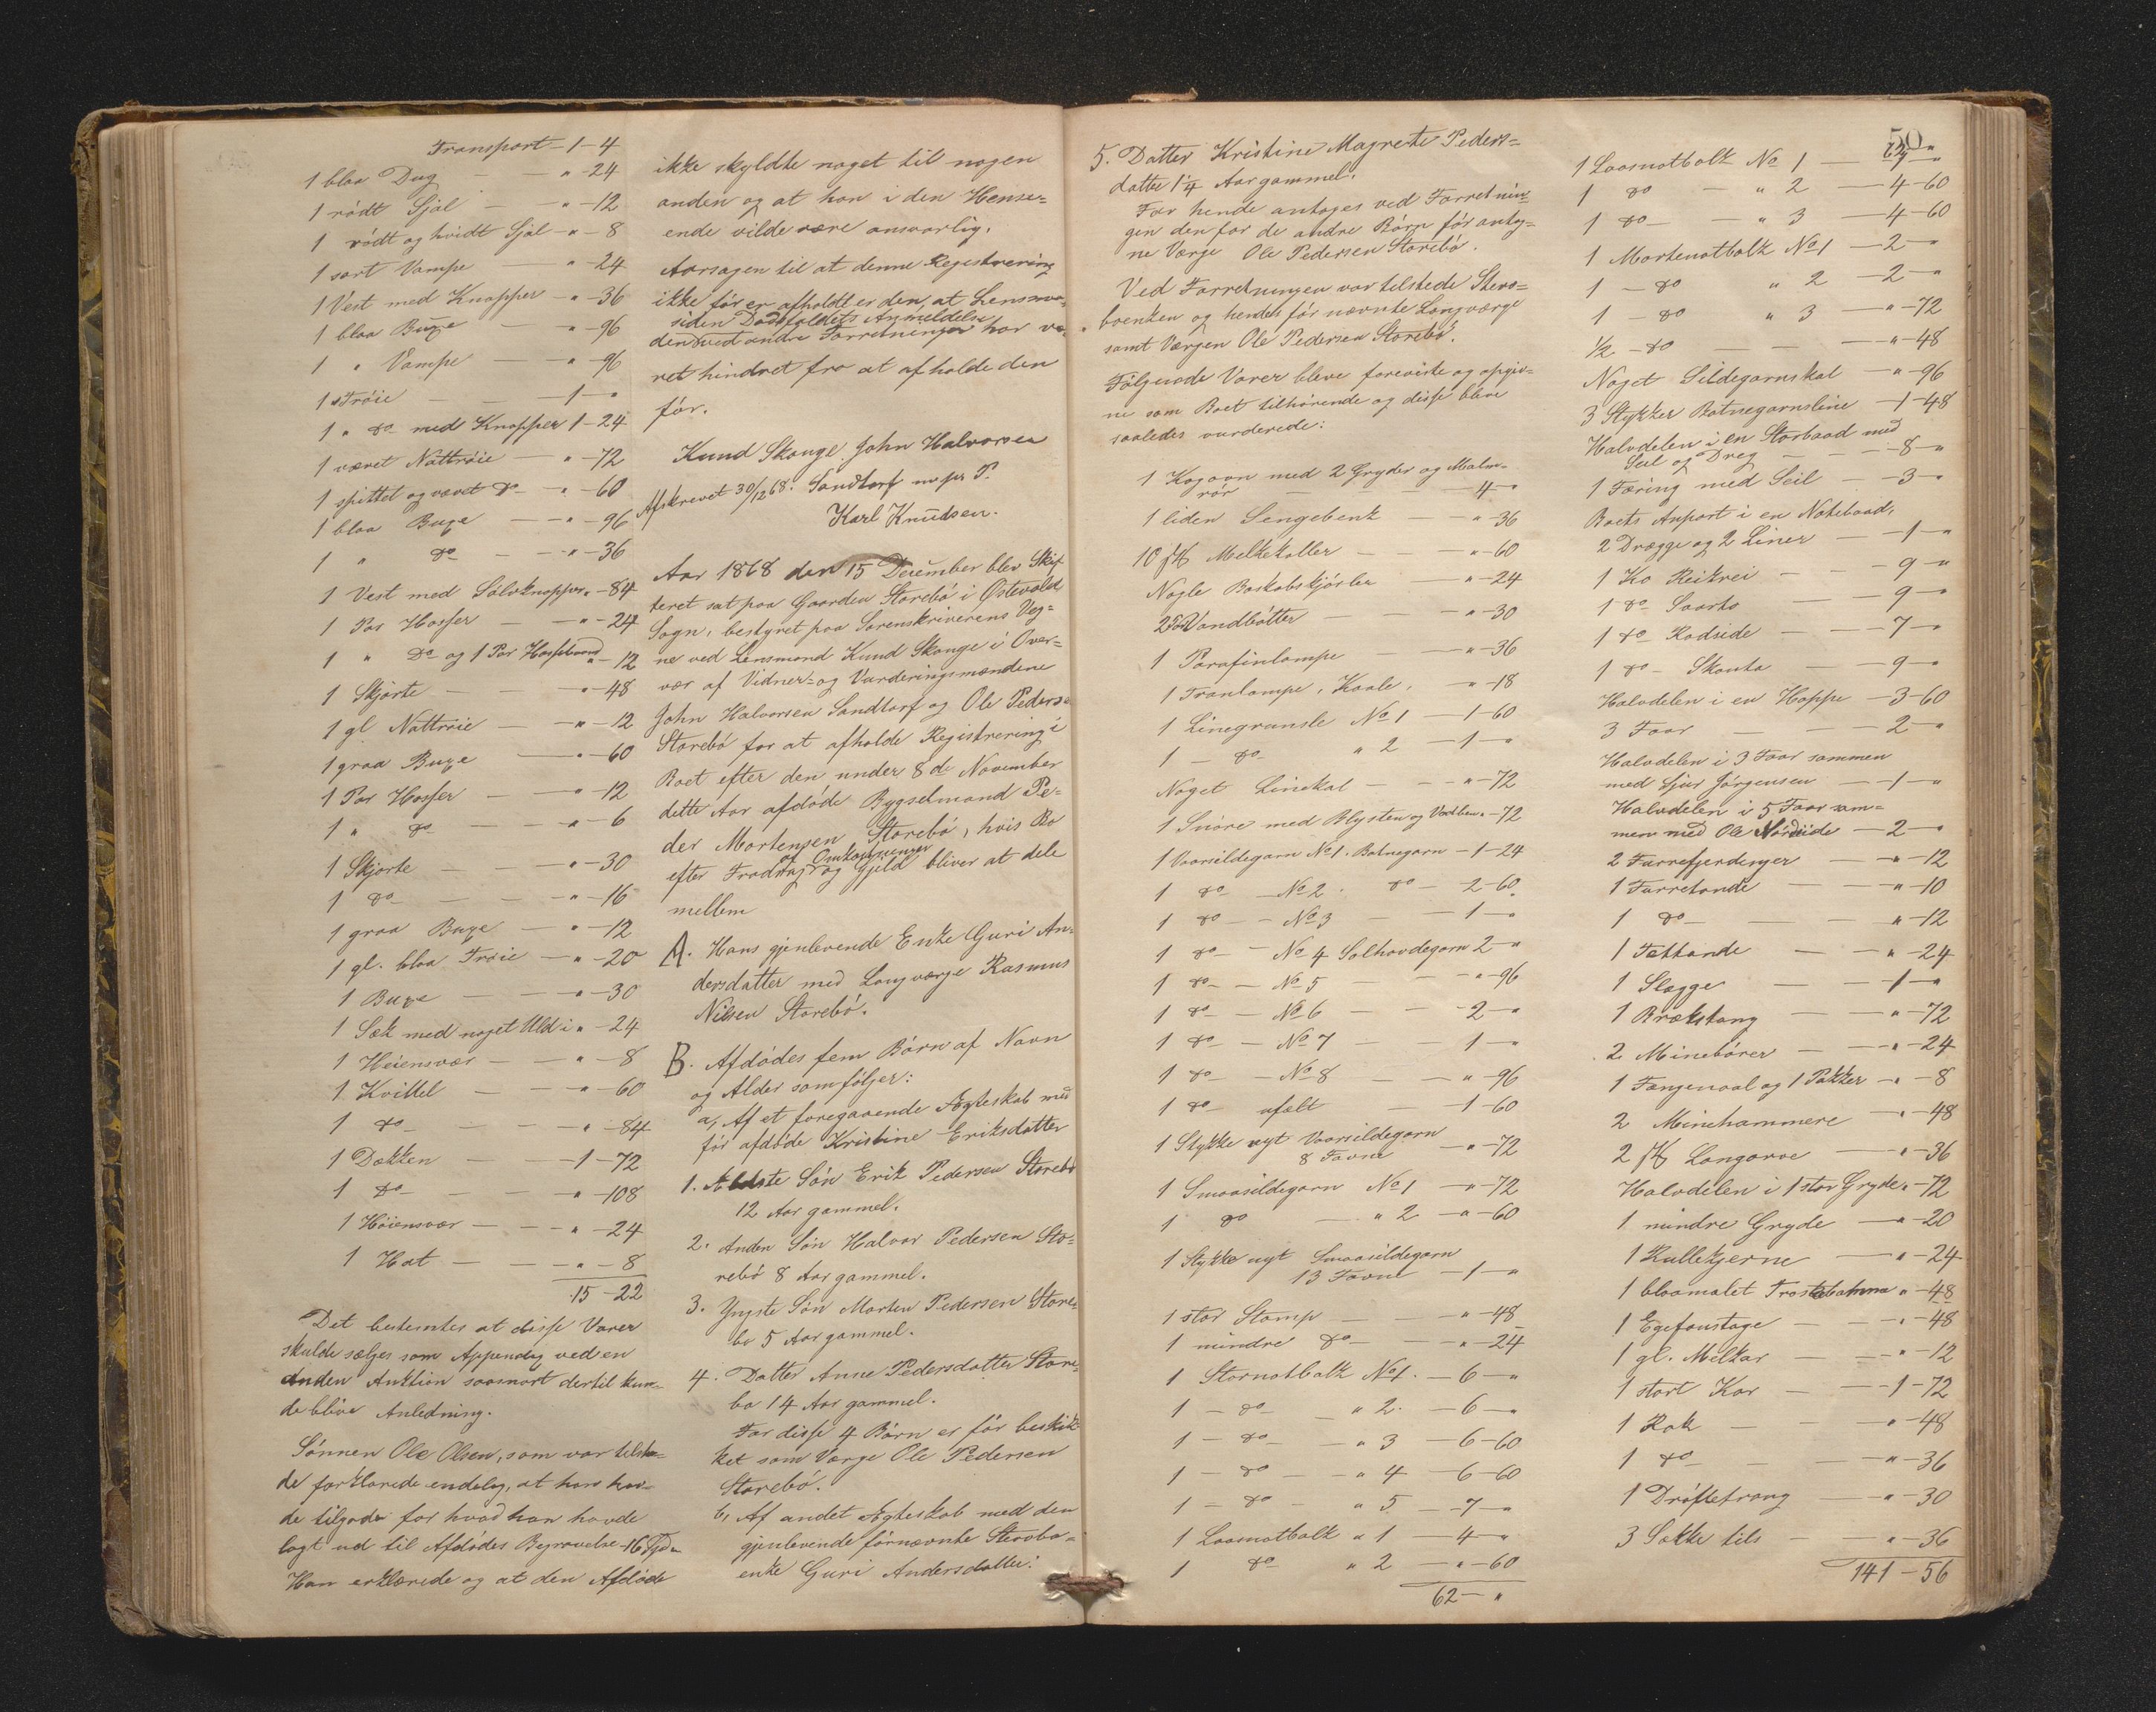 Transport - 1 - 4
1 blaa Dug - " - 24
1 rödt Sjal - " - 12
1 rödt og hvidt Sjal - " - 8
1 sort Vampe - " - 24
1 Vest med Knapper - " - 36
1 blaa Buxe - " - 96
1 " Vampe - " - 96
1 " Tröie - 1 - "
1 " do med Knapper 1 - 24
1 vævet Nattröie - " - 72
1 spittet og vævet do - " - 60
1 blaa Buxe - " - 96
1 " do - " - 36
1 Vest med Sölvknapper " - 84
1 Par Hosser - " - 24
1 " do og 1 Par Hossebaand " - 12
1 Skjorte - " - 48
1 gl Nattröie - " - 12
1 graa Buxe - " - 60
1 Par Hosser - " - 12
1 " do - " - 6
1 Skjorte - " - 30
1 do - " - 16
1 graa Buxe - " - 12
1 gl. blaa Tröie - " - 20
1 Buxe - " - 30
1 Sæk med noget Uld i " - 24
1 Höiensvær - " - 8
1 Kvittel - " - 60
1 do - " - 84
1 Dækken - 1 - 72
1 do - " - 108
1 Höiensvær - " - 24
1 Hat - " - 8
15 - 22
Det bestemtes at disse Varer
skulde sælges som Appendix ved en
anden Auktion saasnart dertil kun-
de blive Anledning.
Sönnen Ole Olsen, som var tilste-
de forklarede endelig, at han hav-
de tilgode for hvad han havde
lagt ud til Afdödes Begravelse - 16 Spd "
Han erklærede og at den Afdöde
ikke skyldte noget til nogen
anden og at han i den Hense-
ende vilde være ansvarlig.
Aarsagen til at denne Registrering
ikke för er afholdt er den, at Lensman-
siden Dödsfaldets Anmeldelse
den ved andre Forretninger har væ-
ret hindret fra at afholde den
för.
Knud Skouge. John Halvorsen
Afskrevet 30/12 68. Sandtorf m. p. P.
Karl Knudsen.
Aar 1868 den 15 December blev Skif-
teret sat paa Gaarden Storebö i Östevolds
Sogn, bestyret paa Sorenskriverens Veg-
ne ved Lensmand Knud Skouge i Over-
vær af Vidner- og Vurderingsmændene
John Halvorsen Sandtorf og Ole Pedersen
Storebö for at afholde Registrering i
Boet efter den under 8de November
dette Aar afdöde Bygselmand Pe-
der Mortensen Storebö, hvis Bo
af Omkostninger
efter Fradrag og Gjeld bliver at dele
mellem
A. Hans gjenlevende Enke Guri An-
dersdatter med Laugværge Rasmus
Nilsen Storebö.
B. Afdödes fem Börn af Navn
og Alder som fölger:
a, Af et foregaaende Ægteskab med
för afdöde Kristine Eriksdatter
1. Ældste Sön Erik Pedersen Storebö
12 Aar gammel.
2. Anden Sön Halvor Pedersen Sto-
rebö 8 Aar gammel.
3. Yngste Sön Morten Pedersen Store-
bö 5 Aar gammel.
4. Datter Anne Pedersdatter Store-
bö 14 Aar gammel.
For disse 4 Börn er för beskik-
ket som Værge Ole Pedersen
Storebö.
b, Af andet Ægteskab med den
gjenlevende fornævnte Stervbo-
enke Guri Andersdatter:
50
5. Datter Kristine Magrete Peders-
datter 1 1/4 Aar gammel.
For hende antoges ved Forretnin-
gen den for de andre Börn för antag-
ne Værge Ole Pedersen Storebö.
Ved Forretningen var tilstede Sterv-
boenken og hendes för nævnte Laugværge
samt Værgen Ole Pedersen Storebö.
Fölgende Varer bleve foreviste og opgiv-
ne som Boet tilhörende og disse bleve
saaledes vurderede:
1 Kogovn med 2 Gryder og Malm-
rör - 4 - "
1 liden Sengebenk - " - 36
10 stk Melkekoller - " - 60
Nogle Boskabskjörler - " - 24
2 Vandbötter - " - 30
1 Parafinlampe - " - 36
1 Tranlampe, Kaale, - " - 18
1 Linegrunsle No 1 - 1 - 60
1 - do " 2 - 1 - "
Noget Linekal - " - 72
1 Snöre med Blysten og " - 72
1 Vaarsildegarn No 1. Botnegarn - 1 - 24
1 do - No 2. do - 2 - 60
1 do - No 3 - 1 - "
1 do - No 4 Salhovdegarn 2 - "
1 do - No 5 - " - 96
1 do - No 6 - 2 - "
1 do - No 7 - 1 - "
1 do - No 8 - " - 96
1 do ufælt - 1 - 60
1 Stykke nyt Vaarsildegarn
8 Favne - " - 72
1 Smaasildegarn No 1 - " - 72
1 do - " 2 - " - 60
1 Stykke nyt Smaasildegarn
13 Favne - 1 - "
1 stor Stamp - " - 48
1 mindre do - " - 24
1 Stornotbalk No 1. - 6 - "
1 - do - " 2. - 6 - "
1 - do - " 3 - 6 - 60
1 - do - " 4 - 6 - 60
1 - do - " 5 - 7 - "
1 Laasnotbalk " 1 - 4 - "
1 do " 2 - " - 60
62 - "
62 "
1 Laasnotbalk No 1
1 do - " 2 - 4 - 60
1 do - " 3 - 4 - 60
1 Mortenotbalk No 1 - 2 - "
1 - do " 2 - 2 - "
1 - do " 3 - " - 72
1/2 - do - " - 48
Noget Sildegarnskal - " - 96
3 Stykker Botnegarnsline - 1 - 48
Halvdelen i en Storbaad med
Seil og Dreg - 8 - "
1 Færing med Seil - 3 - "
Boets Anport i en Notebaad,
2 Drægge og 2 Liner - 1 - "
1 Ko Reikrei - 9 - "
1 do Saarto - 9 - "
1 do Rodside - 7 - "
1 do - Skauta - 9 - "
Halvdelen i en Hoppe - 3 - 60
3 Faar - 2 - "
Halvdelen i 3 Faar sammen
med Sjur Jörgensen - 1 - "
Halvdelen i 5 Faar sam-
men med Ole Nordside - 2 - "
2 Furrefjerdinger - " - 12
1 Furretönde - " - 10
1 do - " - 12
1 Fettönde - " - 24
1 Slægge - 1 - "
1 Brækstang - " - 72
2 Minebörer - " - 24
1 Fængenaal og 1 Pakker - " - 8
2 Minehammere - " - 48
2 stk Langorve - " - 36
Halvdelen i 1 stor Gryde " - 72
1 mindre Gryde - " - 20
1 Rullekjerne - " - 24
1 blaamalet " - 48
1 Egefoustage - " - 48
1 gl. Melkar - " - 12
1 stort Kar - 1 - 72
1 Rok - " - 48
1 do - " - 36
1 Dröftetroug - " - 30
3 Sække tils - " - 36
141 - 56